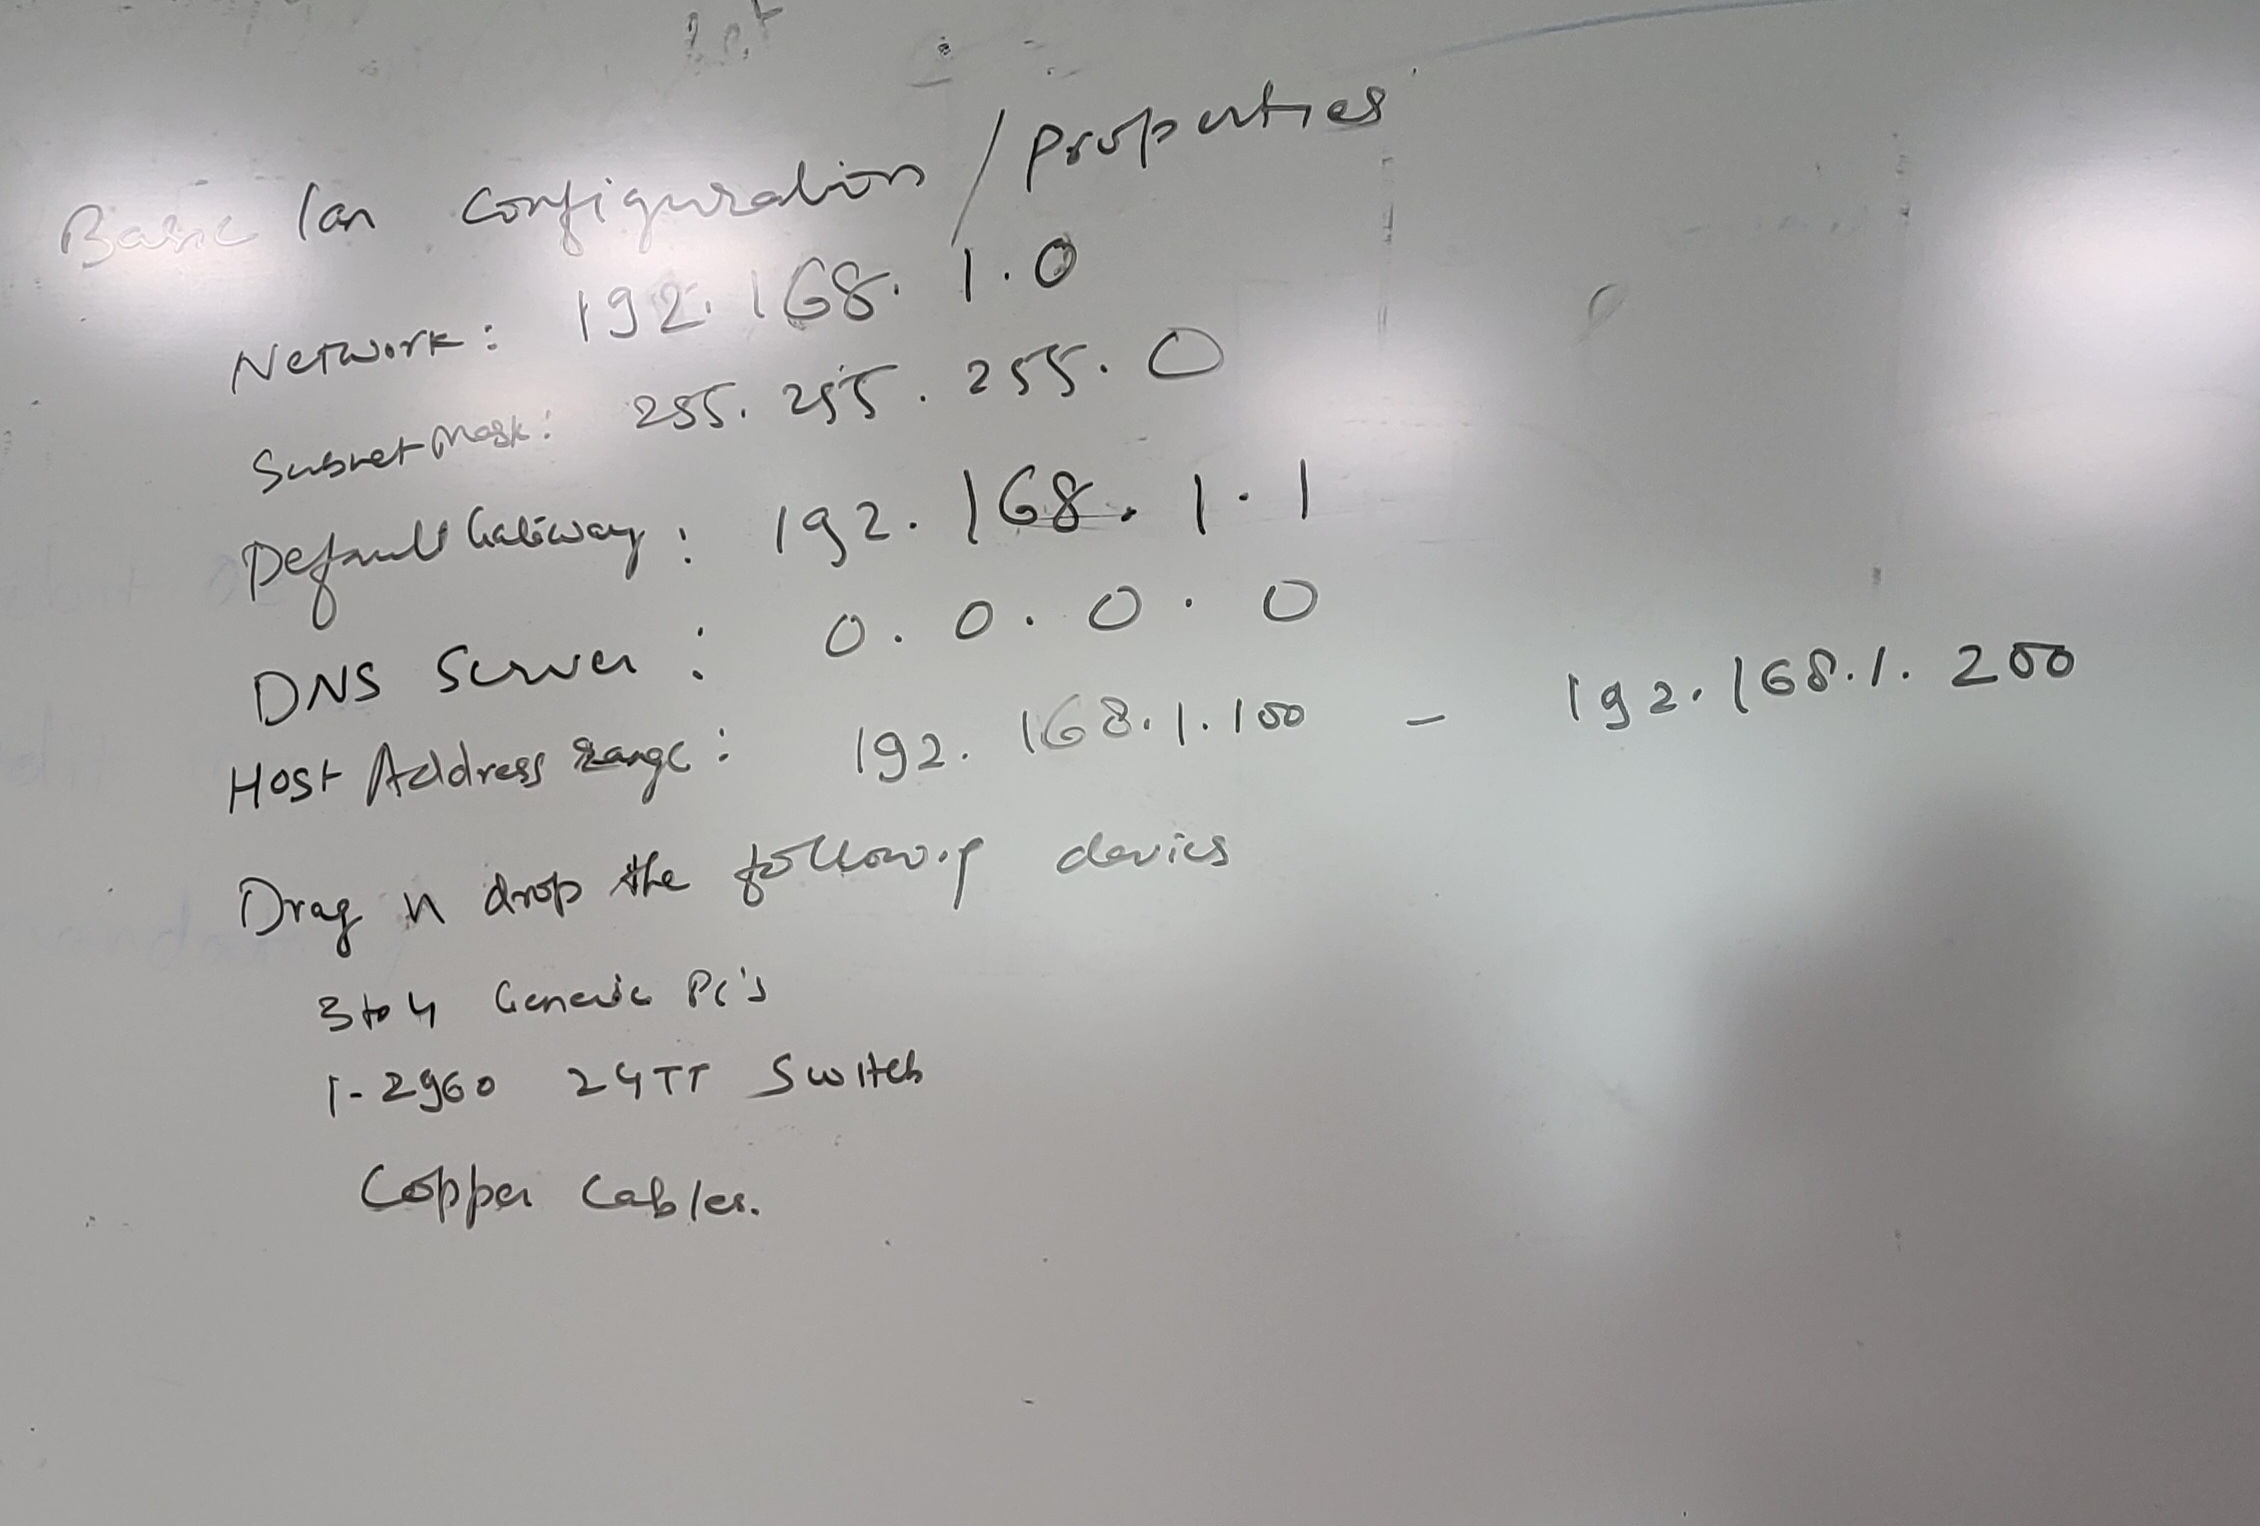 Basic lan configuration / properties
Network: 192.168.1.0
Subnet Mask: 255.255.255.0
Default Gateway: 192.168.1.1
DNS Server: 0.0.0.0
Host Address range: 192.168.1.100 - 192.168.1.200
Drag n drop the following devices
3 to 4 Generic PC's
1-2960 24TT Switch
Copper Cables.